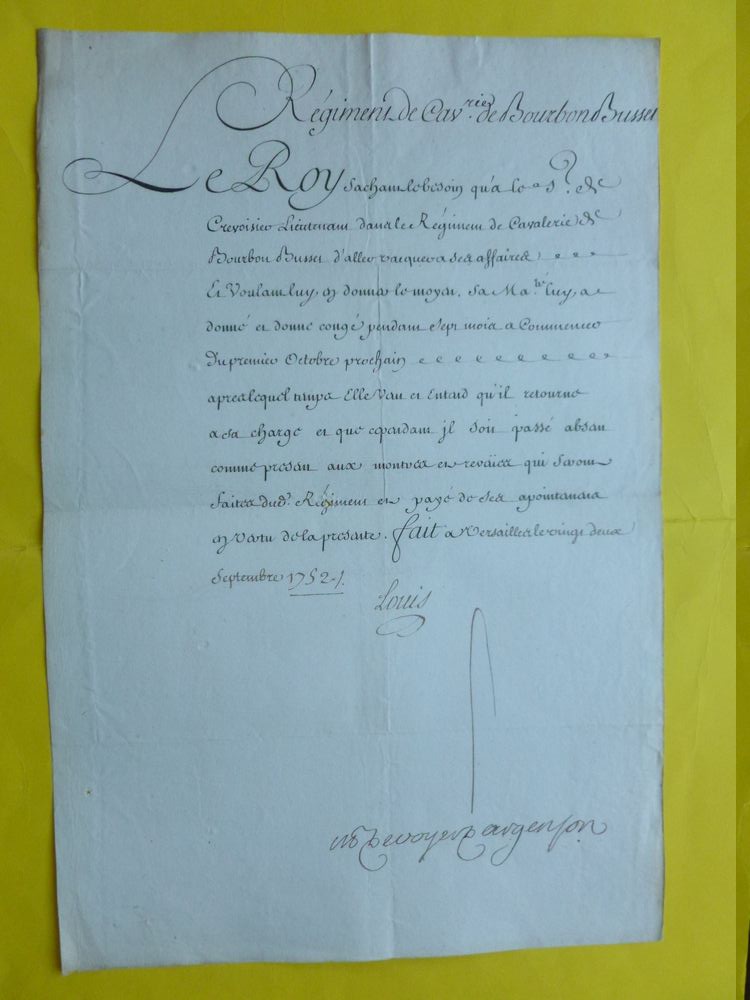 Régiment de Cav.rie de Bourbon Busset
Le Roy sachant le besoin qu'a le S.r de
Crevoisier Lieutenant dans le Régiment de Cavalerie de
Bourbon Busset d'aller vacquer a ses affaires
Et Voulant luy en donner le moyen, Sa Ma.té luy a
donné et donne congé pendant sept mois a Commencer
du premier Octobre prochain
apres lequel temps Elle Veut et Entend qu'il retourne
a sa charge et que cependant jl soit passé absent
comme present aux montres et reveües qui seront
faites dud. Régiment et payé de ses apointemens
en vertu de la presente. fait a Versailles le vingt deux
Septembre 1752./.
Louis
M P de voyer d'argenson